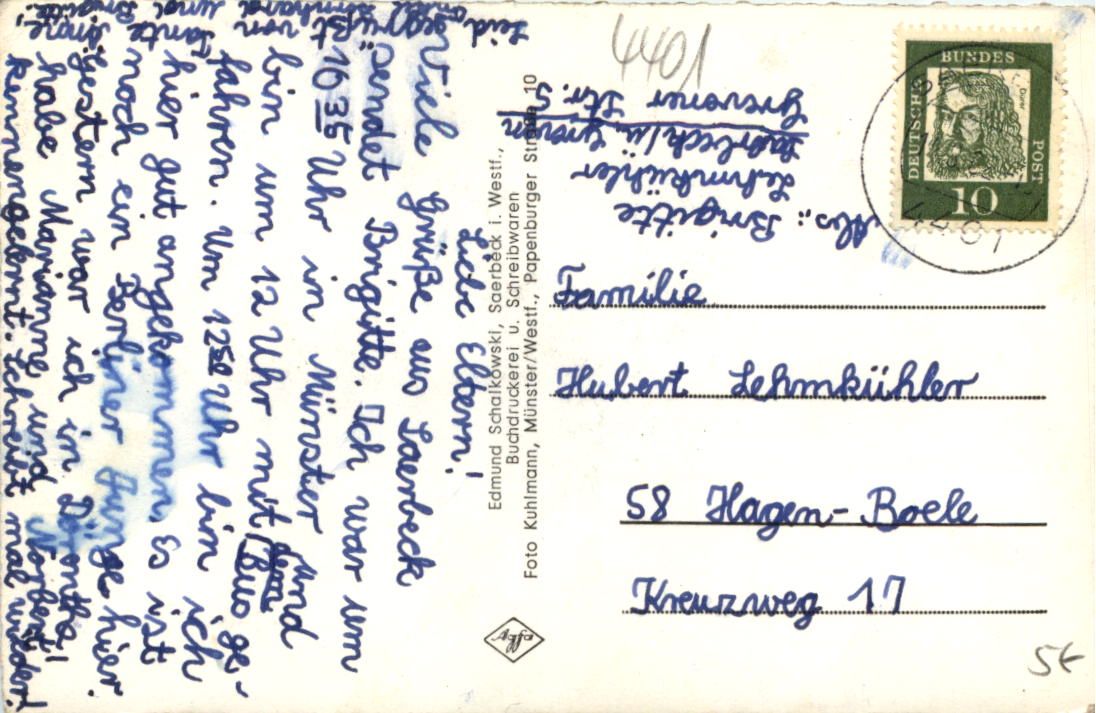 Liebe Eltern!
Viele Grüße aus Saerbeck
sendet Brigitte. Ich war um
10 35 Uhr in Münster und
bin um 12 Uhr mit dem Bus ge-
fahren. Um 12 Uhr bin ich
hier gut angekommen. Es ist
noch ein Berliner Junge hier
Gestern war ich in
habe Marianne und Norbert
kennengelernt. Schreibt mal wieder!
Seid gegrüßt von Tante Änne,
Onkel Bernhard und Brigitte.
Edmund Schalkowski, Saerbeck i. Westf.,
Buchdruckerei u. Schreibwaren
Foto Kuhlmann, Münster/Westf., Papenburger Straße 10
Agfa
4401
Abs.: Brigitte
Lehmkühler
Saerbeck/ü. Greven
Grevener Str. 5
DEUTSCHE BUNDES POST
Dürer
10
4401
Familie
Hubert Lehmkühler
58 Hagen-Boele
Kreuzweg 17
5€